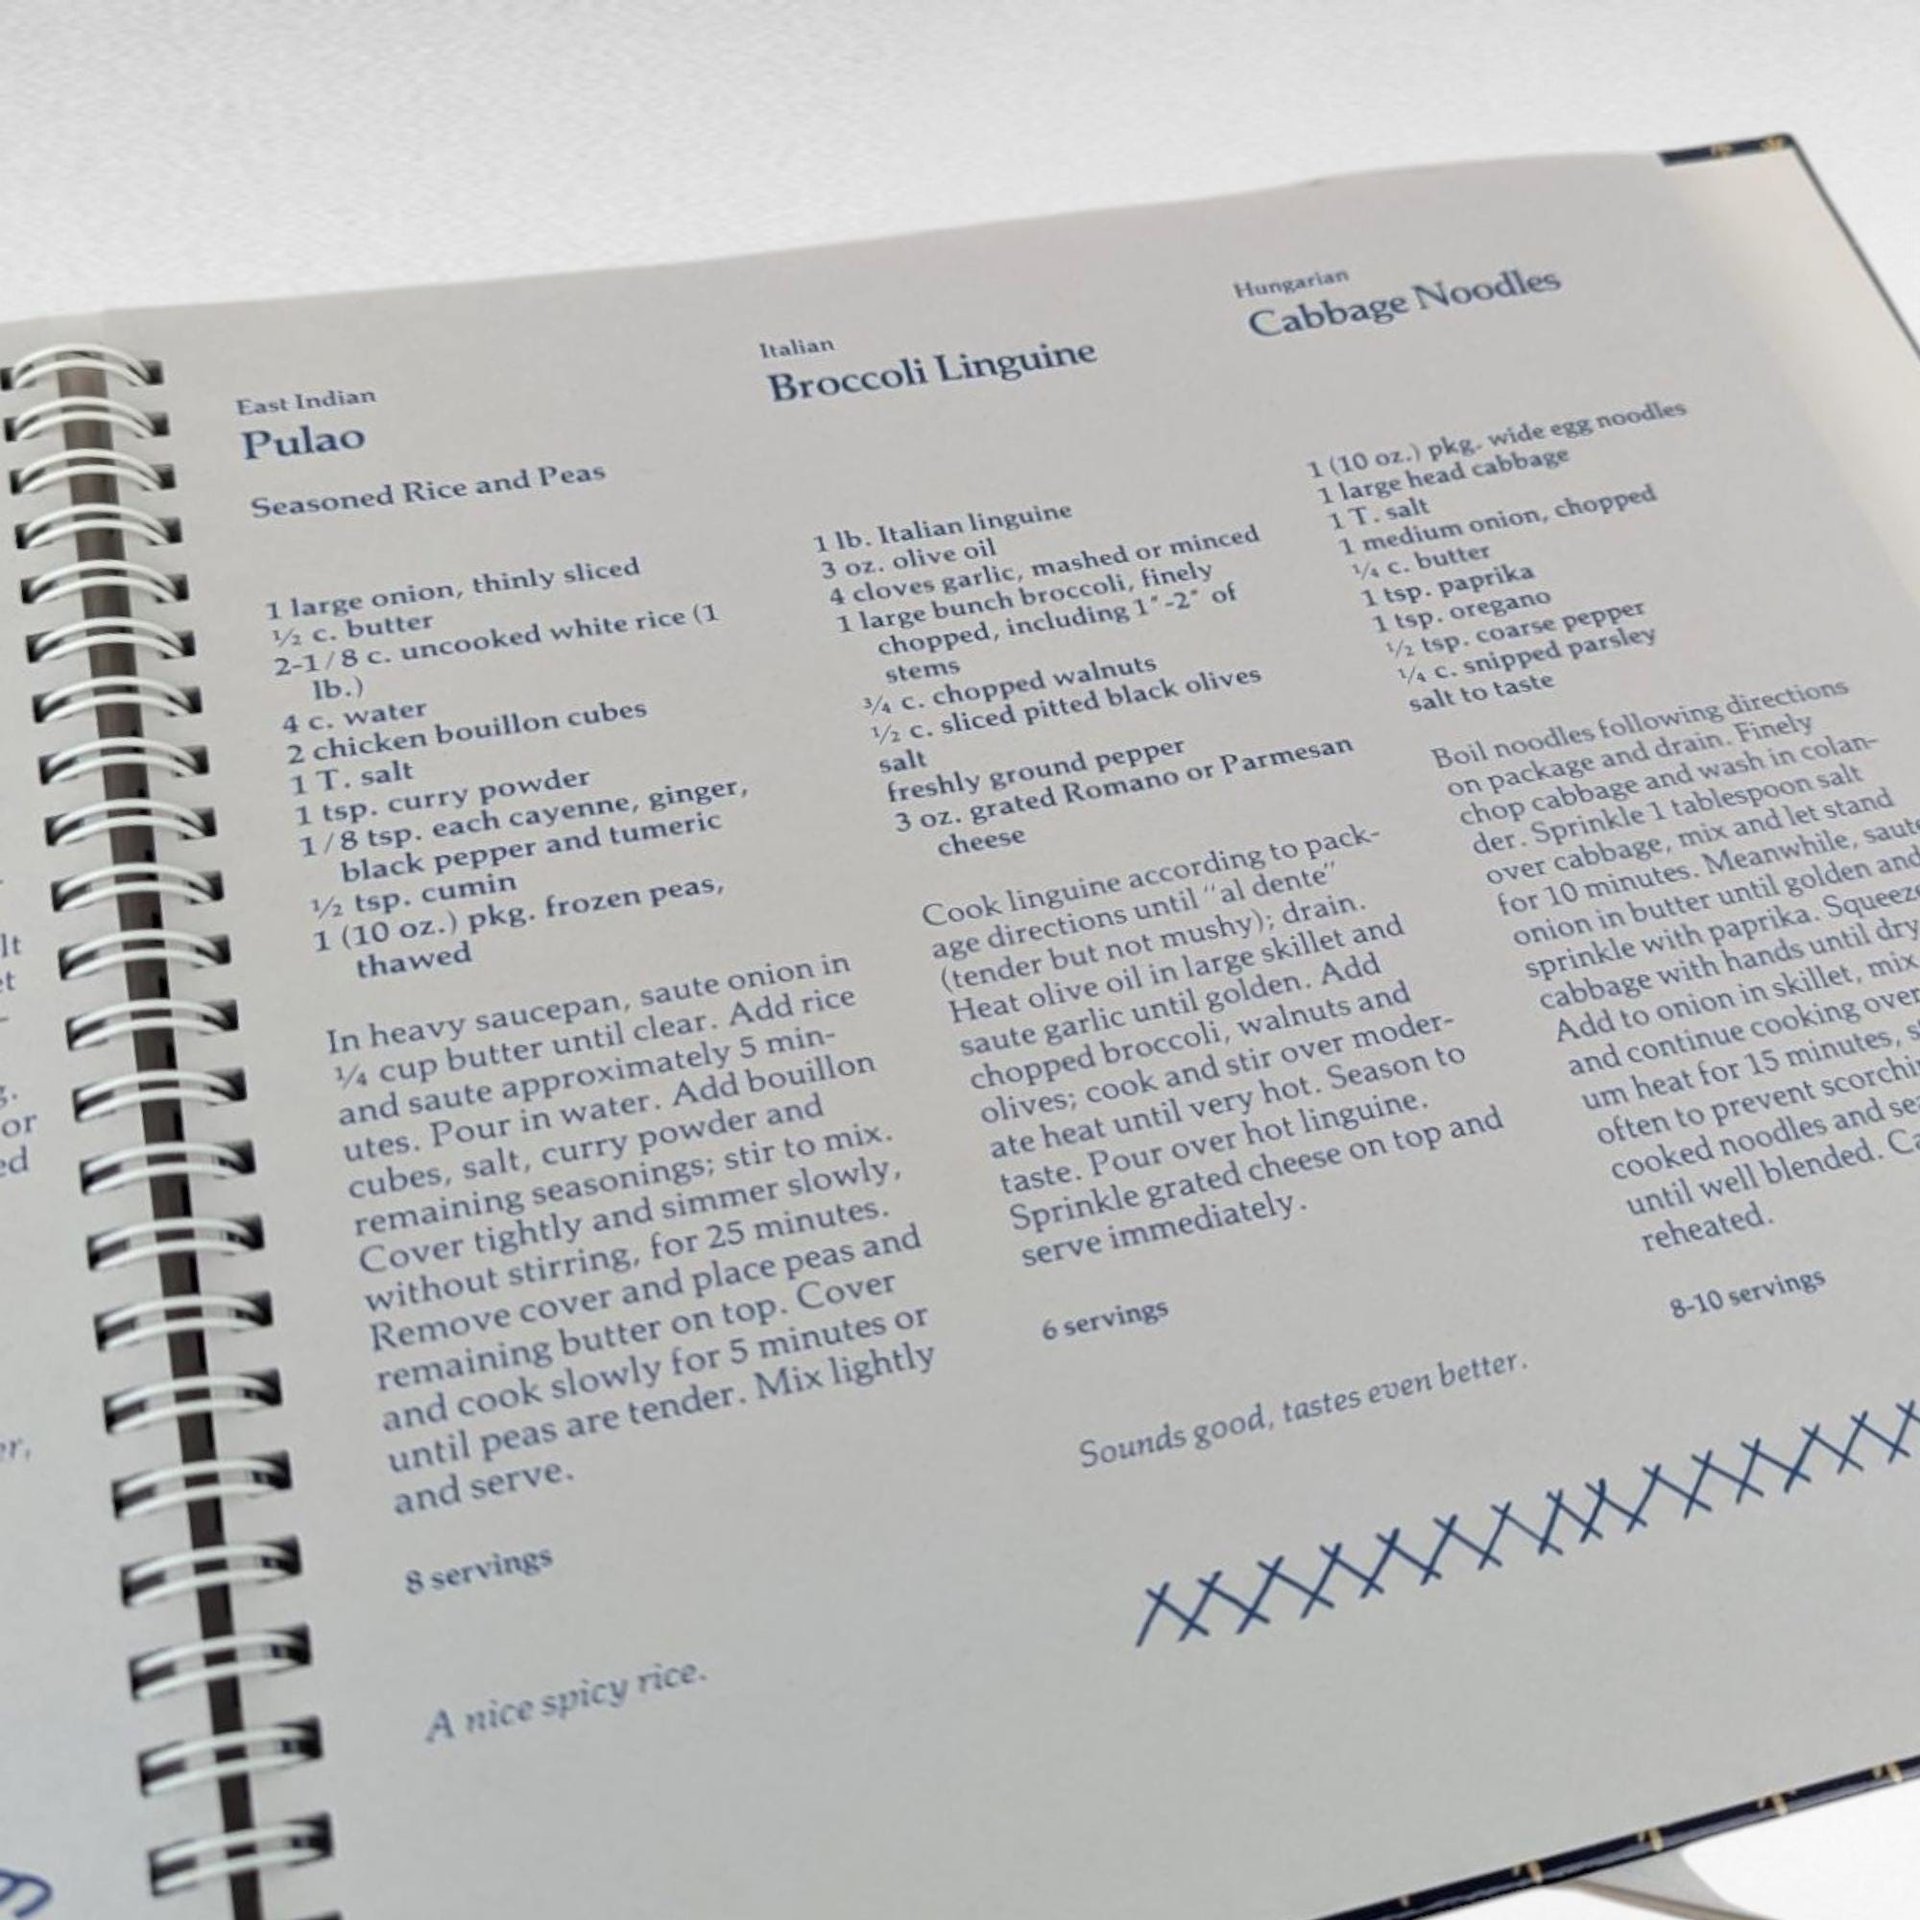 lt
et
g.
or
ed
er,
East Indian
Pulao
Seasoned Rice and Peas
1 large onion, thinly sliced
½ c. butter
2-1/8 c. uncooked white rice (1
lb.)
4 c. water
2 chicken bouillon cubes
1 T. salt
1 tsp. curry powder
1/8 tsp. each cayenne, ginger,
black pepper and tumeric
½ tsp. cumin
1 (10 oz.) pkg. frozen peas,
thawed
In heavy saucepan, saute onion in
¼ cup butter until clear. Add rice
and saute approximately 5 min-
utes. Pour in water. Add bouillon
cubes, salt, curry powder and
remaining seasonings; stir to mix.
Cover tightly and simmer slowly,
without stirring, for 25 minutes.
Remove cover and place peas and
remaining butter on top. Cover
and cook slowly for 5 minutes or
until peas are tender. Mix lightly
and serve.
8 servings
A nice spicy rice.
Italian
Broccoli Linguine
1 lb. Italian linguine
3 oz. olive oil
4 cloves garlic, mashed or minced
1 large bunch broccoli, finely
chopped, including 1"-2" of
stems
¾ c. chopped walnuts
½ c. sliced pitted black olives
salt
freshly ground pepper
3 oz. grated Romano or Parmesan
cheese
Cook linguine according to pack-
age directions until "al dente"
(tender but not mushy); drain.
Heat olive oil in large skillet and
saute garlic until golden. Add
chopped broccoli, walnuts and
olives; cook and stir over moder-
ate heat until very hot. Season to
taste. Pour over hot linguine.
Sprinkle grated cheese on top and
serve immediately.
6 servings
Sounds good, tastes even better.
Hungarian
Cabbage Noodles
1 (10 oz.) pkg. wide egg noodles
1 large head cabbage
1 T. salt
1 medium onion, chopped
¼ c. butter
1 tsp. paprika
1 tsp. oregano
½ tsp. coarse pepper
¼ c. snipped parsley
salt to taste
Boil noodles following directions
on package and drain. Finely
chop cabbage and wash in colan-
der. Sprinkle 1 tablespoon salt
over cabbage, mix and let stand
for 10 minutes. Meanwhile, saute
onion in butter until golden and
sprinkle with paprika. Squeeze
cabbage with hands until dry
Add to onion in skillet, mix
and continue cooking over
um heat for 15 minutes, s
often to prevent scorchi
cooked noodles and sea
until well blended. Ca
reheated.
8-10 servings